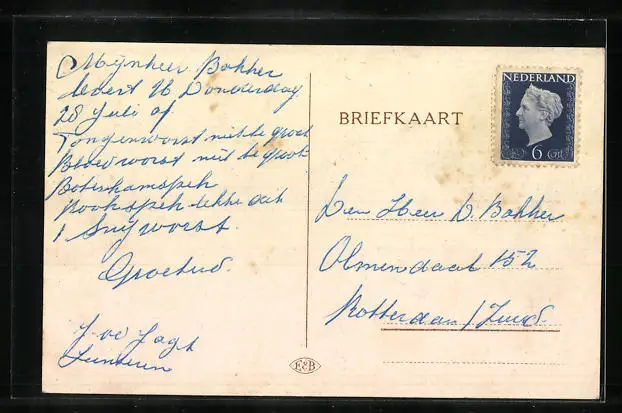 Mijnheer Bakker
levert U Donderdag
28 Juli af
Tongenworst niet te groot
Bloedworst niet te groot
Boterhamspek
Rookspek lekke dik
1 Snijworst.
Groetend.
J. vd Jagt
Lunteren
BRIEFKAART
NEDERLAND
6 Cnt
Den Heer D. Bakker
Olmendaal 152
Rotterdam / Zuid.
E&B